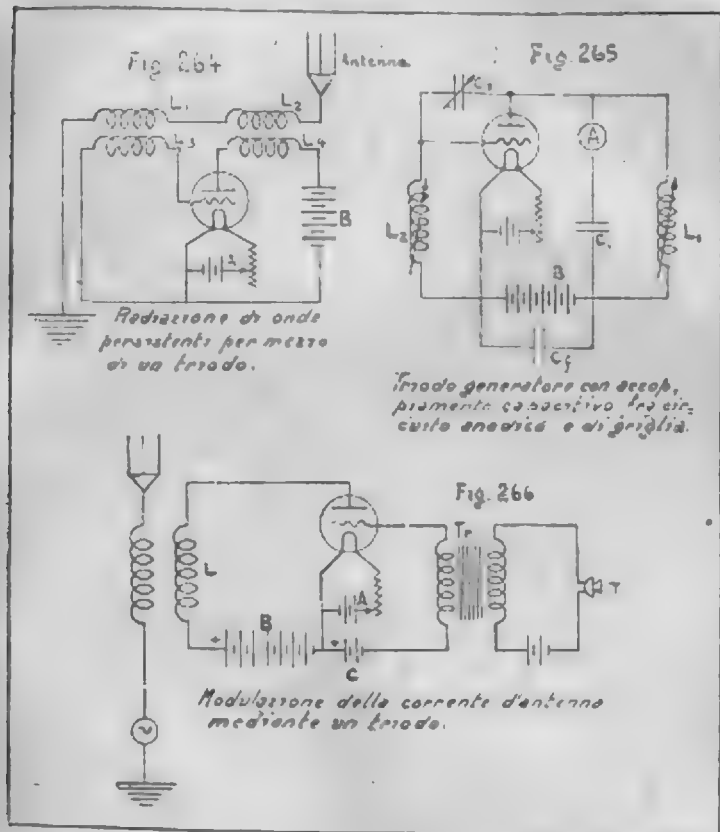 Fig. 264
Antenna
L1
L2
L3
L4
B
Radiazione di onde
persistenti per mezzo
di un triodo.
Fig. 265
A
L2
L1
B
Cf
Triodo generatore con accop,
piamento capacitivo tra cir,
cuito anodico e di griglia.
Fig. 266
Tr
L
A
T
B
+
+
C
Modulazione della corrente d'antenna
mediante un triodo.